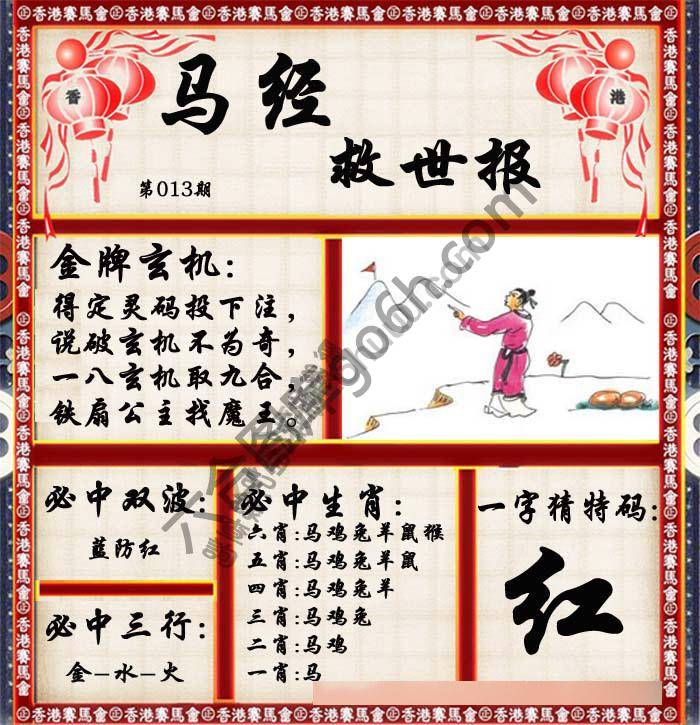 香港賽馬會㊣香港賽馬會㊣香港賽馬會㊣香港賽馬會㊣香港賽馬會㊣香港賽馬會
香
港
马经
救世报
第013期
金牌玄机:
得定灵码投下注，
说破玄机不为奇，
一八玄机取九合，
铁扇公主找魔王。
必中双波:
蓝防红
必中三行:
金-水-火
必中生肖:
六肖:马鸡兔羊鼠猴
五肖:马鸡兔羊鼠
四肖:马鸡兔羊
三肖:马鸡兔
二肖:马鸡
一肖:马
一字猜特码:
红